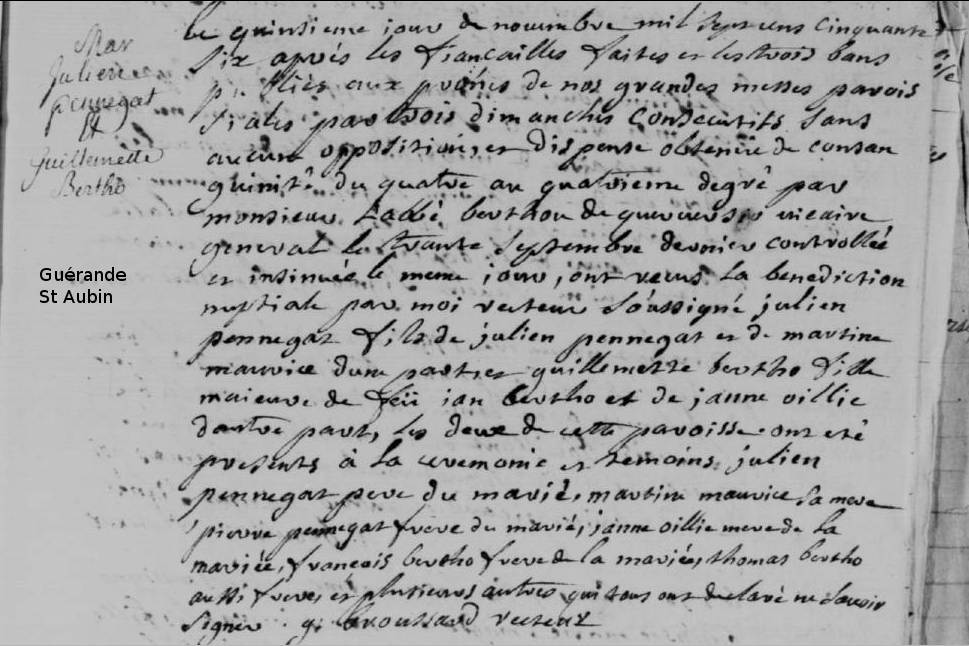 Mar
Julien
pennegat
et
Guillemette
Bertho
Guérande
St Aubin
le quinsieme jour de novembre mil sept cens cinquante
six aprés les fiançailles faites et les trois bans
publiés aux prônes de nos grandes messes parois
siales par trois dimanches consecutifs sans
aucune opposition, et dispense obtenue de consan
guinité du quatre au quatrieme degré par
monsieur L'abbé berthou de vicaire
general le trante septembre dernier controllée
et insinuée le meme jour, ont recus la benediction
nuptiale par moi recteur soussigné julien
pennegat fils de julien pennegat et de martine
maurice dune part, et guillemette bertho fille
maieure de feü jan bertho et de janne oillic
dautre part, les deux de cette paroisse. ont eté
presents à la ceremonie et temoins julien
pennegat pere du marié, martine maurice sa mere
pierre pennegat frere du marié, janne oillic mere de la
mariée, francois bertho frere de la mariée, thomas bertho
aussi frere, et plusieurs autres qui tous ont declaré ne savoir
signer. g. broussard recteur